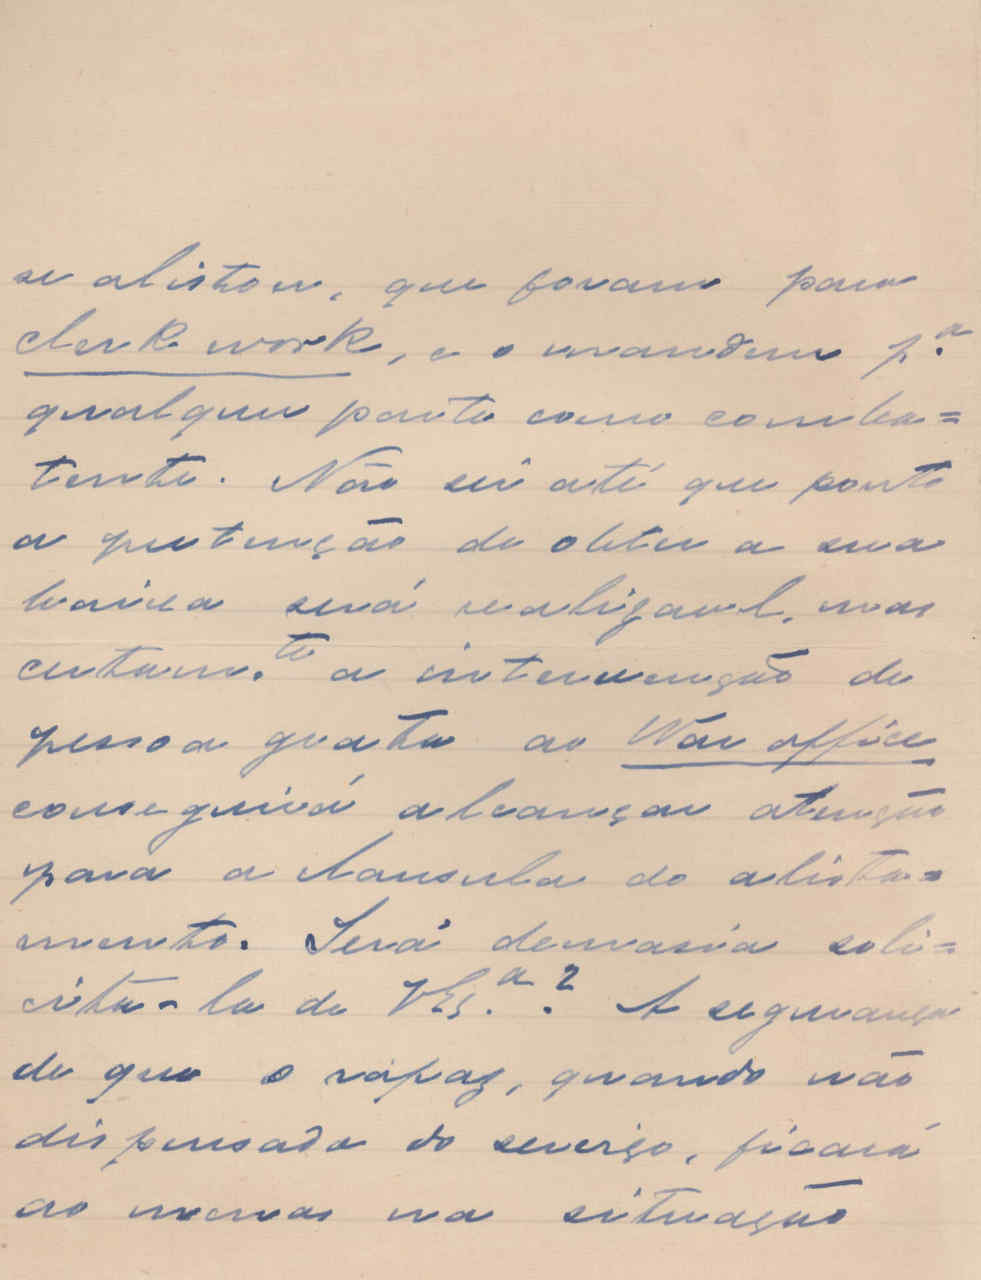 se alistou, que foram para
clerk work, e o mandem p.ª
qualquer parte como comba=
tente. Não sei até que ponto
a pretenção de obter a sua
baixa será realizavel, mas
certam.te a intervenção de
pessoa grata ao War office
conseguirá alcançar atenção
para a clausula do alista=
mento. Será demasia soli=
cita-la de VEx.ª? A segurança
de que o rapaz, quando não
dispensado do serviço, ficará
ao menos na situação